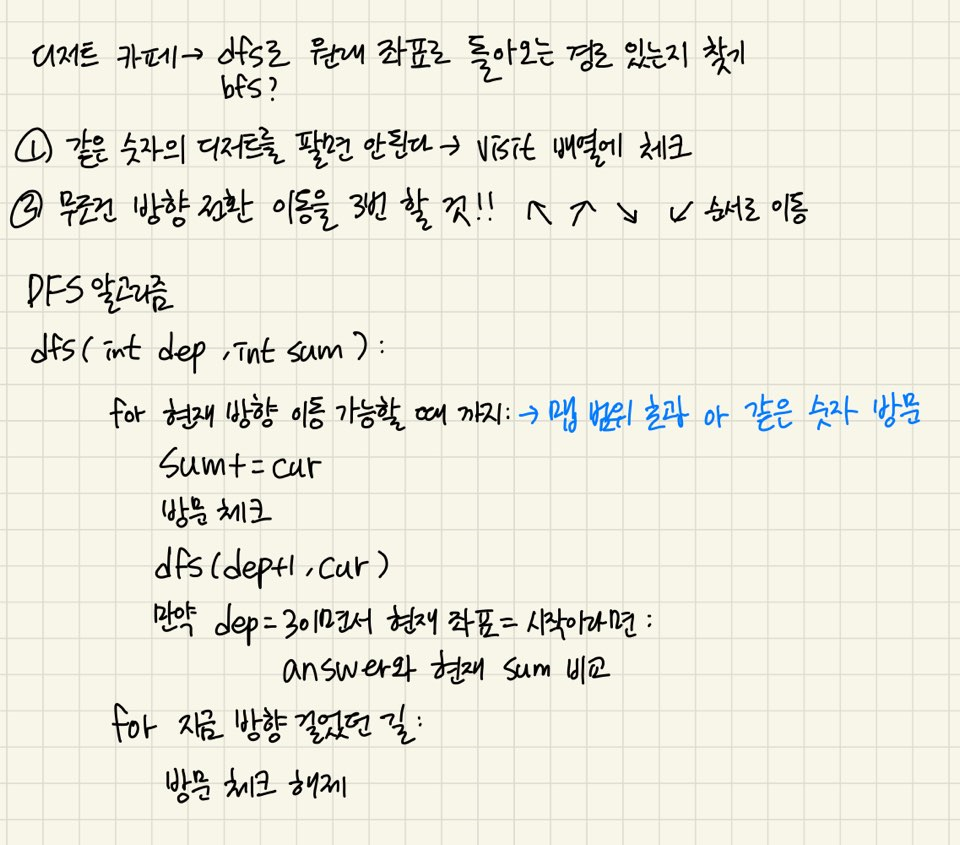 디저트 카페 → dfs로 원래 좌표로 돌아오는 경로 있는지 찾기
bfs?
① 같은 숫자의 디저트를 팔면 안된다 → visit 배열에 체크
② 무조건 방향 전환 이동을 3번 할 것!! ↖ ↗ ↘ ↙ 순서로 이동
DFS 알고리즘
dfs( int dep , int sum ) :
for 현재 방향 이동 가능할 때 까지: → 맵 범위 초과 or 같은 숫자 방문
sum+=cur
방문 체크
dfs(dep+1 , cur )
만약 dep=3이면서 현재 좌표= 시작이라면 :
answer와 현재 sum 비교
for 지금 방향 걸었던 길 :
방문 체크 해제